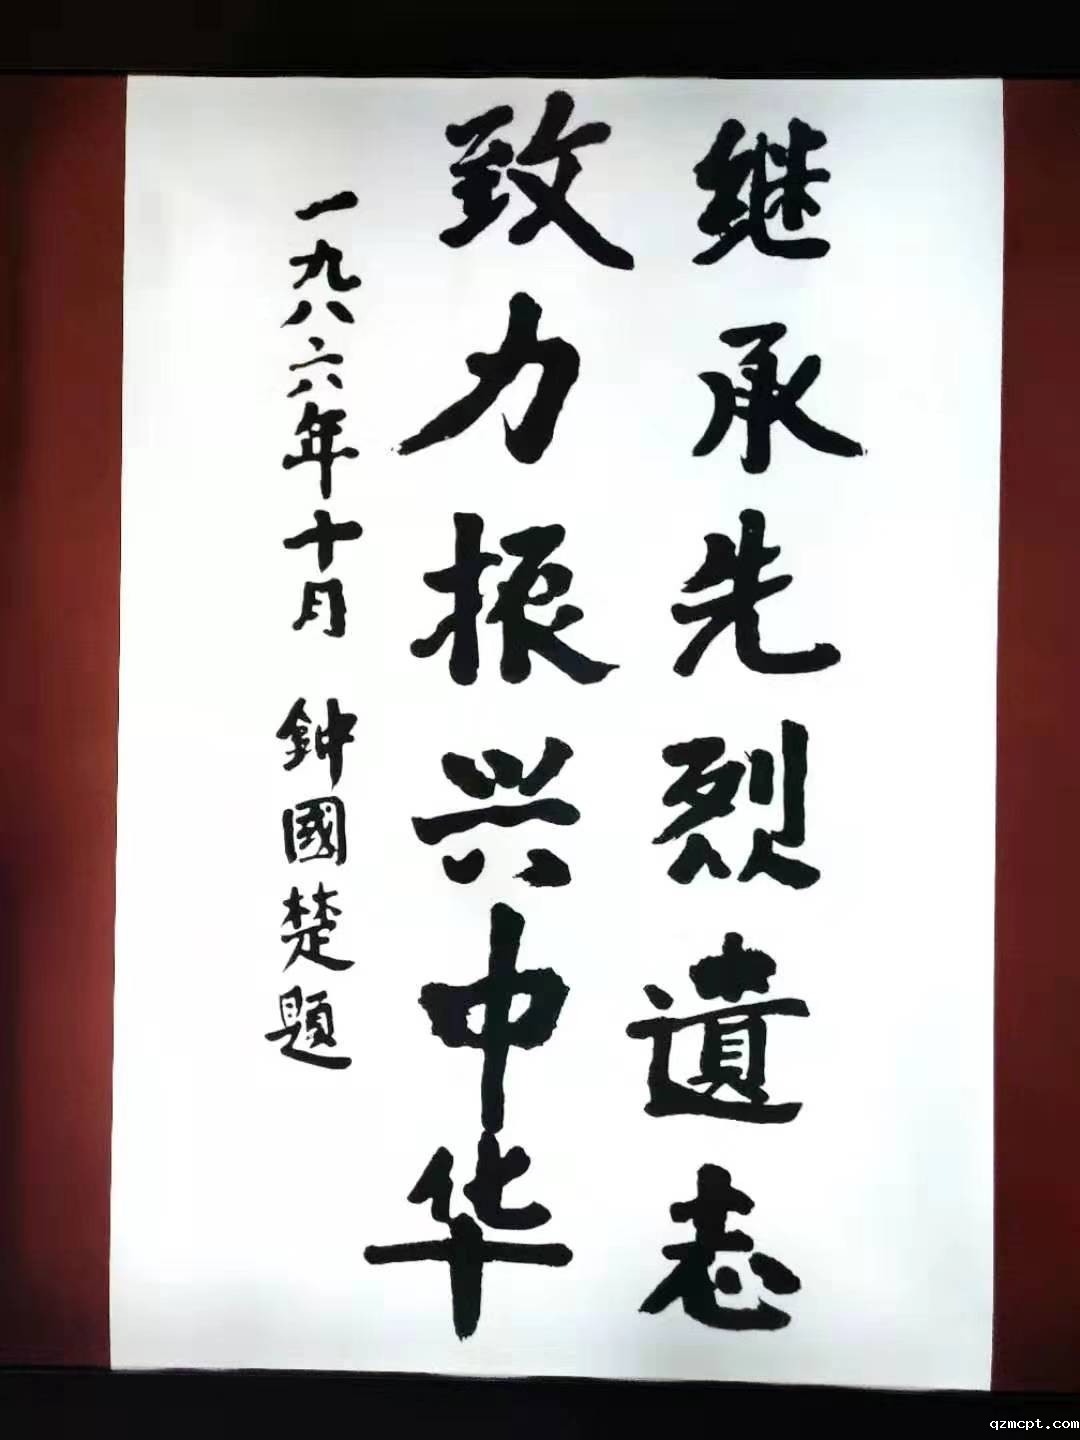 继承先烈遺志
致力振兴中华
一九八六年十月 鈡國楚题
qzmcpt.com